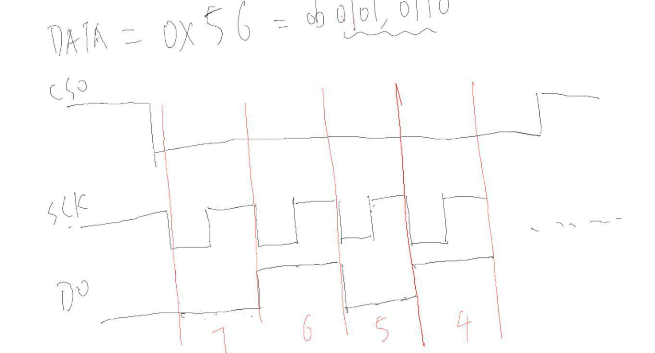 DATA = 0x56 = 0b 0101, 0110
CS0
SCK
D0
7 6 5 4